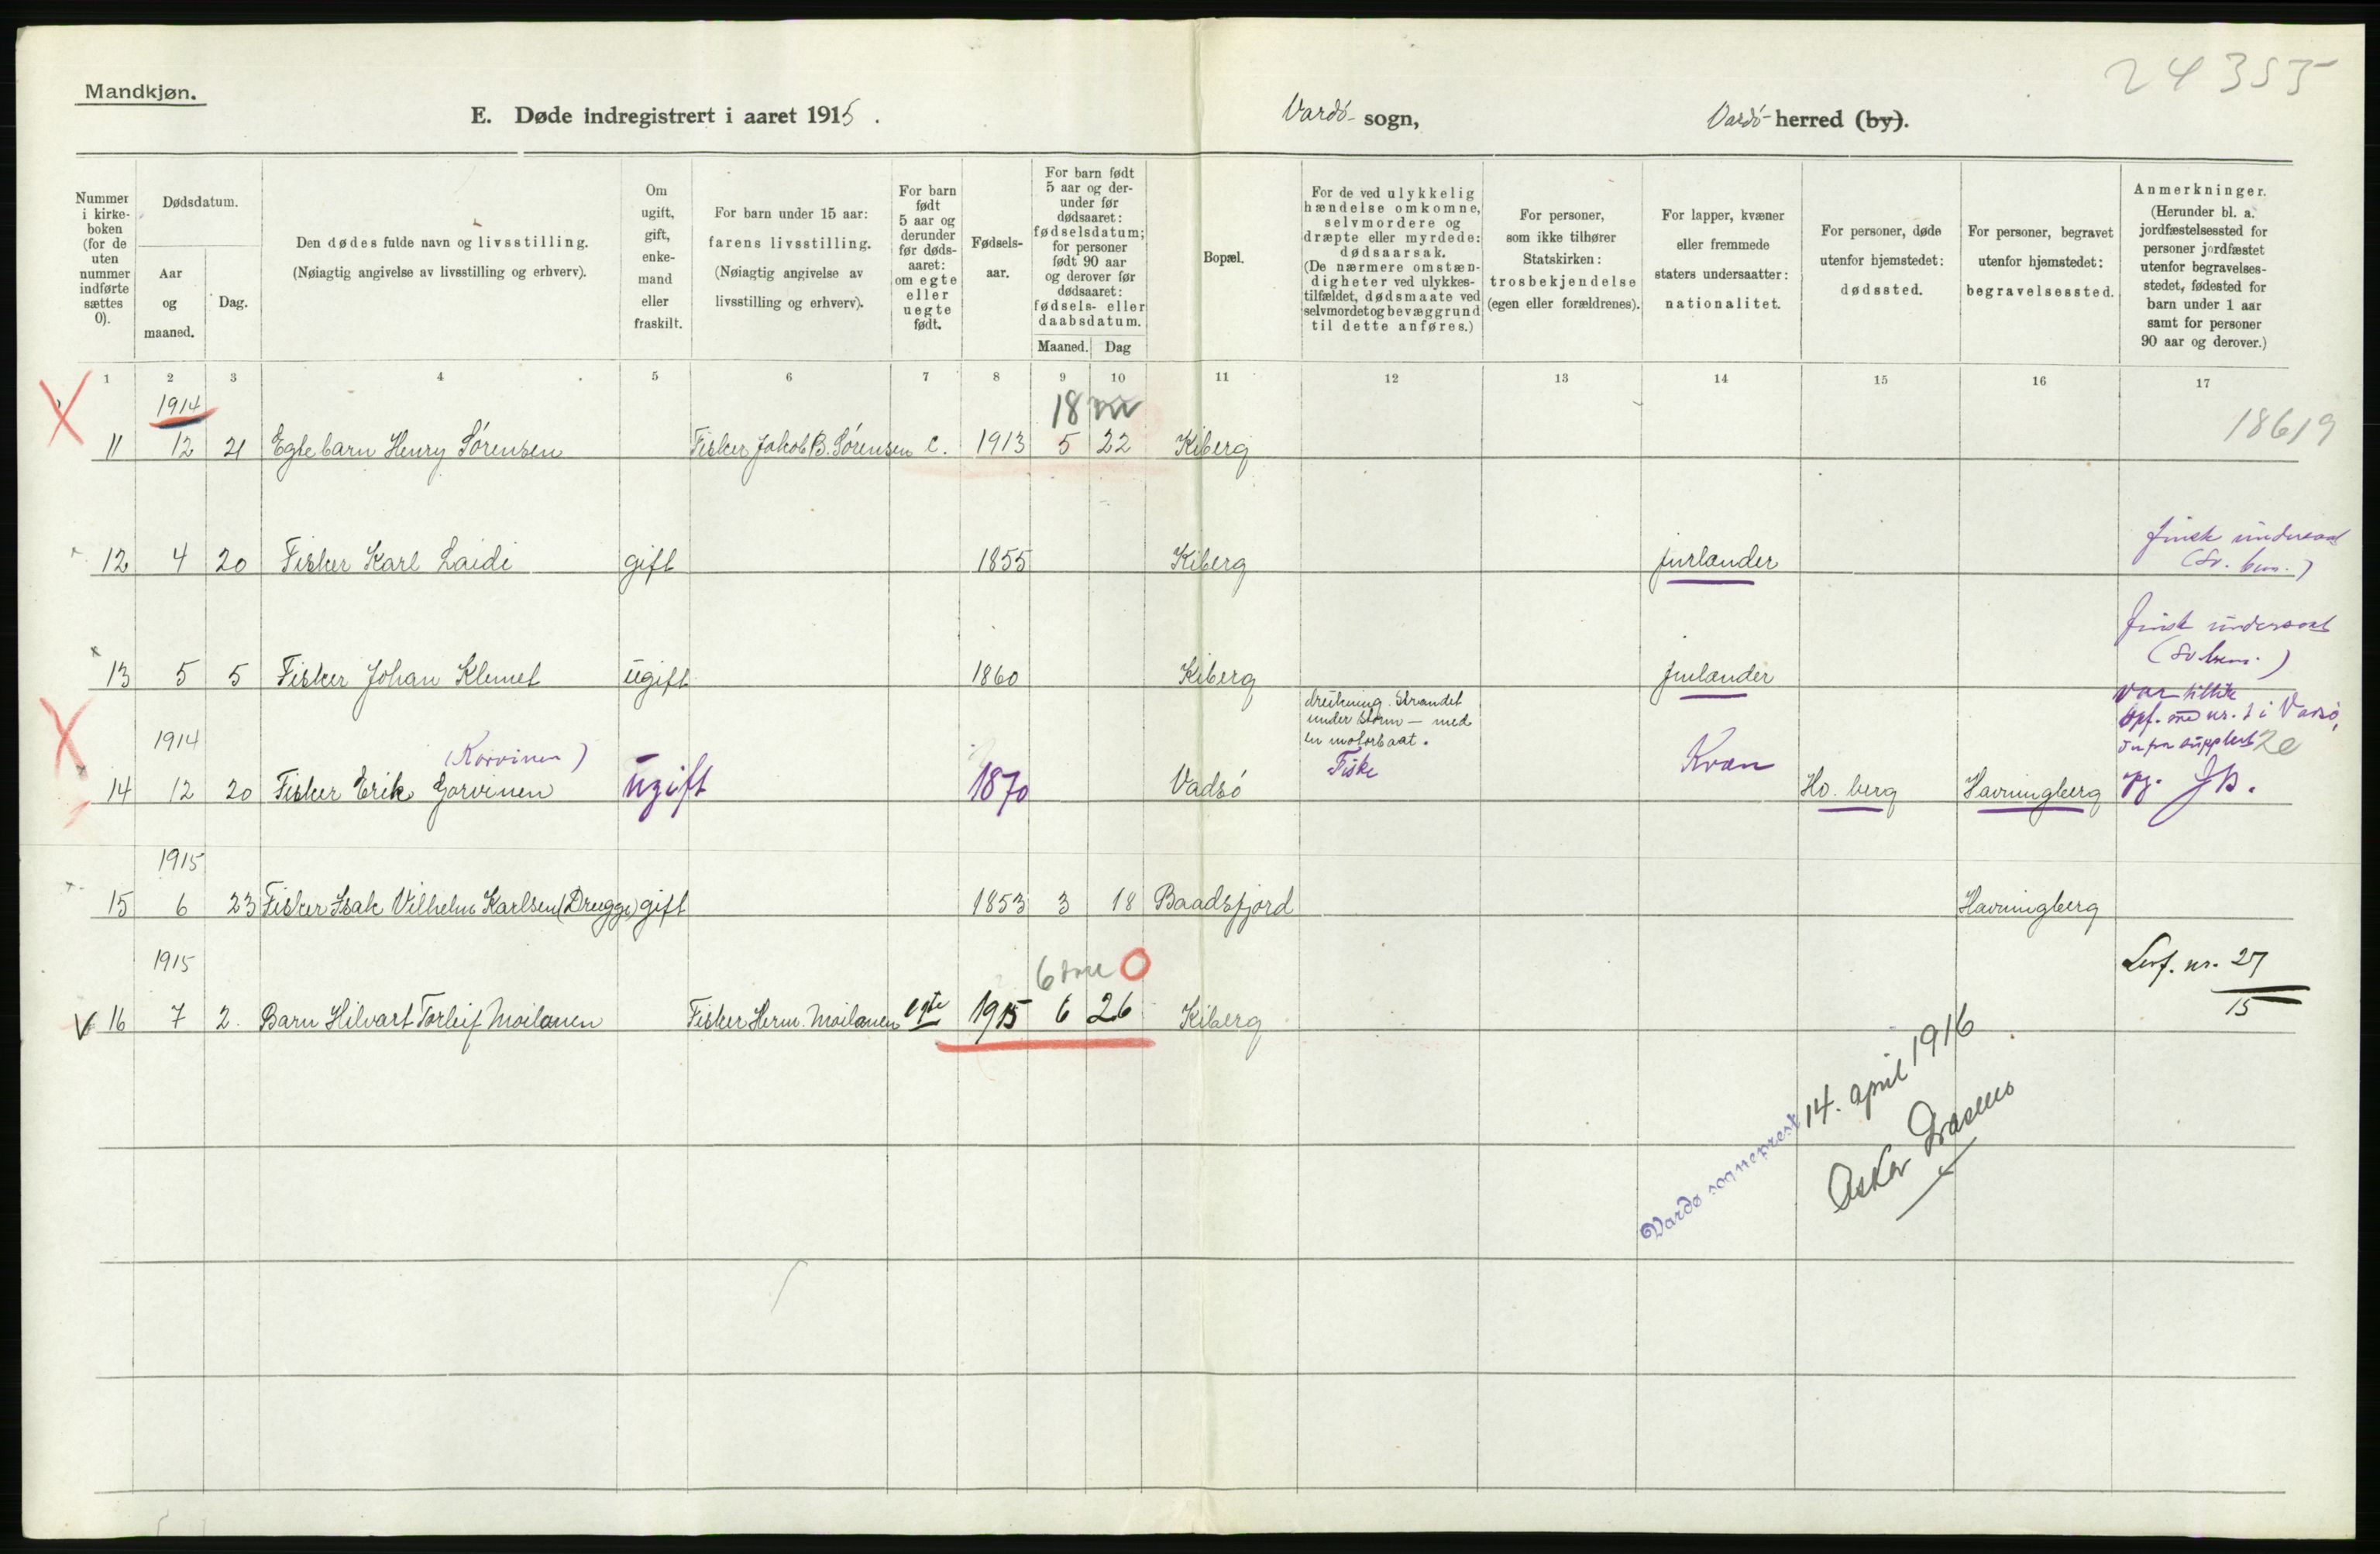 24355
Mandkjøn.
E. Døde indregistrert i aaret 1915.
Vardö sogn,
Vardö herred (by).
Nummer i kirkeboken (for de uten nummer indførte sættes 0).
Dødsdatum.
Aar og maaned.
Dag.
Den dødes fulde navn og livsstilling.
(Nøiagtig angivelse av livsstilling og erhverv).
Om ugift, gift, enkemand eller fraskilt.
For barn under 15 aar: farens livsstilling.
(Nøiagtig angivelse av livsstilling og erhverv).
For barn født 5 aar og derunder før dødsaaret: om egte eller uegte født.
Fødselsaar.
For barn født 5 aar og derunder før dødsaaret: fødselsdatum; for personer født 90 aar og derover før dødsaaret: fødsels- eller daabsdatum.
Maaned. Dag
Bopæl.
For de ved ulykkelig hændelse omkomne, selvmordere og dræpte eller myrdede: dødsaarsak.
(De nærmere omstændigheter ved ulykkestilfældet, dødsmaate ved selvmordet og bevæggrund til dette anføres.)
For personer, som ikke tilhører Statskirken: trosbekjendelse (egen eller forældrenes).
For lapper, kvæner eller fremmede staters undersaatter: nationalitet.
For personer, døde utenfor hjemstedet: dødssted.
For personer, begravet utenfor hjemstedet: begravelsessted.
Anmerkninger.
(Herunder bl. a. jordfæstelsessted for personer jordfæstet utenfor begravelsesstedet, fødested for barn under 1 aar samt for personer 90 aar og derover.)
1 2 3 4 5 6 7 8 9 10 11 12 13 14 15 16 17
1914 18 m 18619
11 12 21 Egte barn Henry Sörensen Fisker Jakob B. Sörensen e. 1913 5 22 Kiberg
finsk undersaat
12 4 20 Fisker Karl Laidi gift 1855 Kiberg finlænder
finsk undersaat
13 5 5 Fisker Johan Klemet ugift 1860 Kiberg finlænder
drukning. Strandet
under storm – med
en motorbaat.
1914 (Korvinen) Fiske
14 12 20 Fisker Erik Gorvinen ugift 1870 Vadsö Kvæn Ho. berg Havningberg
1915
15 6 23 Fisker Isak Vilhelm Karlsen (Drugge) gift 1853 3 18 Baadsfjord Havningberg
1915 6 0
Levf. nr. 27
15
16 7 2. Barn Hilvart Torleif Moilanen Fisker Herm. Moilanen egte 1915 6 26 Kiberg
Vardø sogneprest 14. april 1916